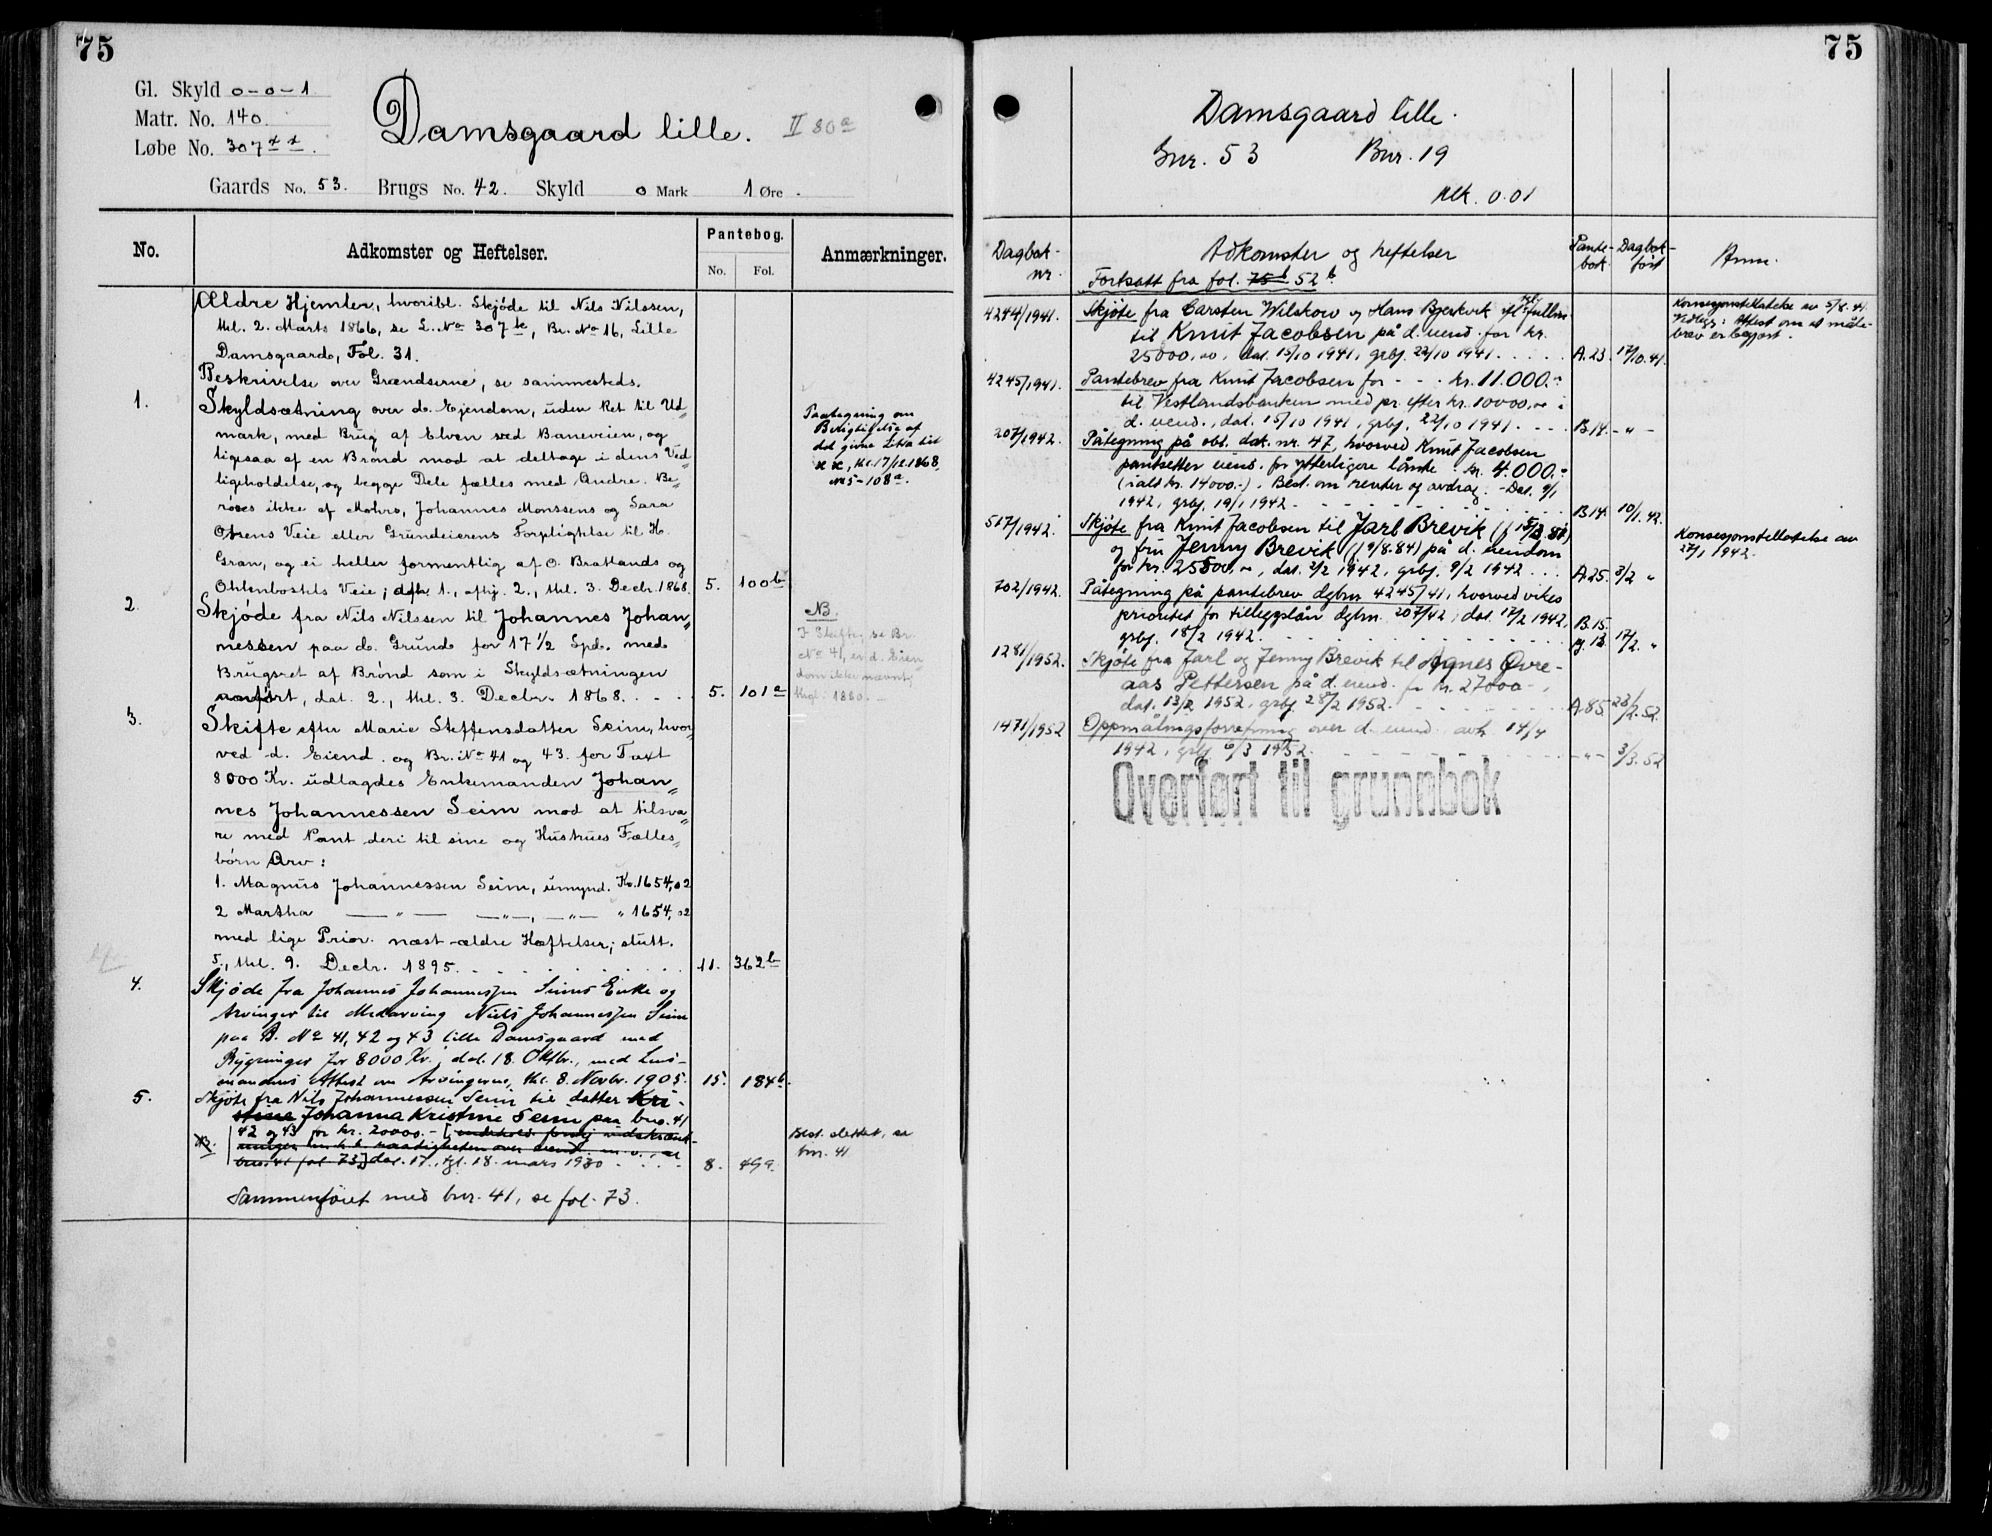 75
Gl. Skyld 0-0-1
Matr. No. 140.
Løbe No. 307 xx.
Damsgaard lille. II 80a
Gaards No. 53. Brugs No. 42. Skyld 0 Mark 1 Øre.
No. Adkomster og Heftelser. Pantebog. No. Fol. Anmærkninger.
Ældre Hjemler, hvoribl. Skjøde til Nils Nilssen,
thl. 2. Marts 1866, se L. No 307 k, Br. No 16, Lille
Damsgaard, Fol. 31.
Beskrivelse over Grændserne, se sammesteds.
1. Skyldsætning over d. Ejendom, uden Ret til Ud=
mark, med Brug af Elven ved Baneveien, og
ligesaa af en Brønd mod at deltage i dens Ved=
ligeholdelse, og begge Dele fælles med Andre. Be=
røres ikke af Mohrs, Johannes Monssens og Lars
Olsens Veie eller Grundeierens Forpligtelse til H.
Gran, og ei heller formentlig af O. Bratlands og
Ohlenbostels Veie; afh. 1., afhj. 2., thl. 3. Decbr. 1868. 5. 100b
Paategning om
Berigtigelse af
det givne Litra til
x x, thl. 17/12 1868,
No 5 - 108a.
2. Skjøde fra Nils Nilssen til Johannes Johan=
nessen paa d. Grund for 17 1/2 Spd. med
Brugsret af Brønd som i Skyldsætningen
anført, dat. 2., thl. 3. Decbr. 1868. . - . 5. 101a
NB.
I Skifte, se Br.
No 41, er d. Eien
dom ikke nævnt,
thgl. 1880.
3. Skifte efter Marie Steffensdatter Seim, hvor=
ved d. Eiend. og Br. No 41 og 43 for Taxt
8000 Kr. udlagdes Enkemanden Johan=
nes Johannessen Seim mod at tilsva=
re med Pant deri til sine og Hustrues Fælles=
børn Arv:
1. Magnus Johannessen Seim, umynd. Kr. 1654,02
2 Martha — " — — " —, — " — " 1654,02
med lige Prior. næst ældre Hæftelser; slutt.
5., thl. 9. Decbr. 1895. . . . 11. 362b
4. Skjøde fra Johannes Johannessen Seims Enke og
Arvinger til Medarving Nils Johannessen Seim
paa B. No 41, 42 og 43 lille Damsgaard med
Bygninger for 8000 Kr., dat. 18. Oktbr., med Lens-
mandens Attest om Arvingerne, thl. 8. Novbr. 1905. 15. 184b.
5. Skjøte fra Nils Johannessen Seim til datter Kri-
stine Johanna Kristine Seim paa bno. 41
NB. 42 og 43 for kr. 20000.- [indehold. forøvr. indskrænk-
ninger m.h.t. raadigheten over eiend. m.v., se
bno. 41 fol 73] dat. 17., tgl. 18. mars 1930 . . . 8. 499.
Best. slettet, se
bnr. 41
Sammenføiet med bnr. 41, se fol. 73.
75
Damsgaard lille.
Gnr. 53 Bnr. 19
Mk. 0.01
Dagbok-nr. Adkomster og heftelser Pante-bok Dagbok-ført Anm.
Fortsatt fra fol. 75b 52b
4244/1941. Skjøte fra Carsten Wilskow og Hans Bjerkvik ifl. tgl. fullm.
til Knut Jacobsen på d. eiend. for kr.
25000,00, dat. 15/10 1941, grbj. 22/10 1941. . . . . A.23. 17/10.41.
Konsesjonstillatelse av 5/8.41.
Vedlegg: Attest om at måle-
brev er begjært.
4245/1941. Pantebrev fra Knut Jacobsen for - - - kr. 11.000.-
til Vestlandsbanken med pr. efter kr. 10000,00 i
d. eiend., dat. 15/10 1941, grbj. 22/10 1941. - - - B.14. - " -
207/1942. Påtegning på obl. dok. nr. 47, hvorved Knut Jacobsen
pantsetter eiend. for ytterligere lånte . kr. 4.000.-
(ialt kr. 14000.-). Best. om renter og avdrag. - Dat. 9/1
1942, grbj. 19/1 1942. - - - - B.14. 10/1.42.
517/1942. Skjøte fra Knut Jacobsen til Jarl Brevik (f 15/3.81)
og fru Jenny Brevik (f 9/8.84) på d. eiendom
for kr. 25500,00, dat. 2/2 1942, grbj. 9/2 1942 . . . A.25. 3/2 "
Konsesjonstillatelse av
27/1 1942.
702/1942. Påtegning på pantebrev dgbnr 4245/41, hvorved vikes
prioritet for tilleggslån dgbnr. 207/42; dat. 17/2 1942,
grbj. 18/2 1942. - - - - B.15. 17/2. "
1281/1952. Skjøte fra Jarl og Jenny Brevik til Agnes Øvre-
aas Pettersen på d. eiend. for kr. 27000.-,
dat. 13/2 1952, grbj. 28/2 1952. - - - - A.85. 23/2.52.
1471/1952 Oppmålingsforretning over d. eiend. avh. 14/4
1942, grbj. 6/3 1952. - - - - - " - 3/3.52
Overført til grunnbok